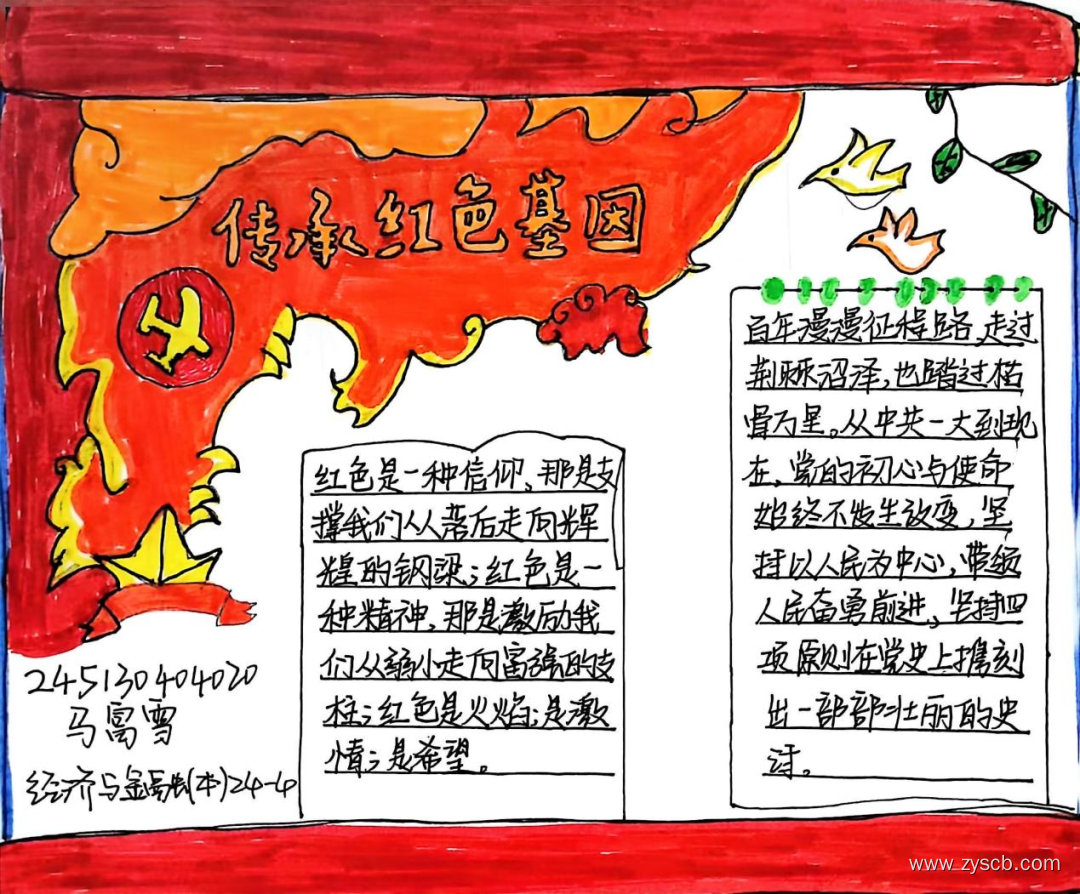 传承红色基因
红色是一种信仰,那是支
撑我们从落后走向辉
煌的钢梁;红色是一
种精神,那是激励我
们从弱小走向富强的支
柱;红色是火焰;是激
情;是希望。
百年漫漫征程路,走过
荆棘沼泽,也踏过枯
骨万里。从中共一大到现
在,党的初心与使命
始终不发生改变,坚
持以人民为中心,带领
人民奋勇前进,坚持四
项原则在党史上镌刻
出一部部壮丽的史
诗。
245130404020
马富雪
经济与金融(本)24-4
www.zyscb.com